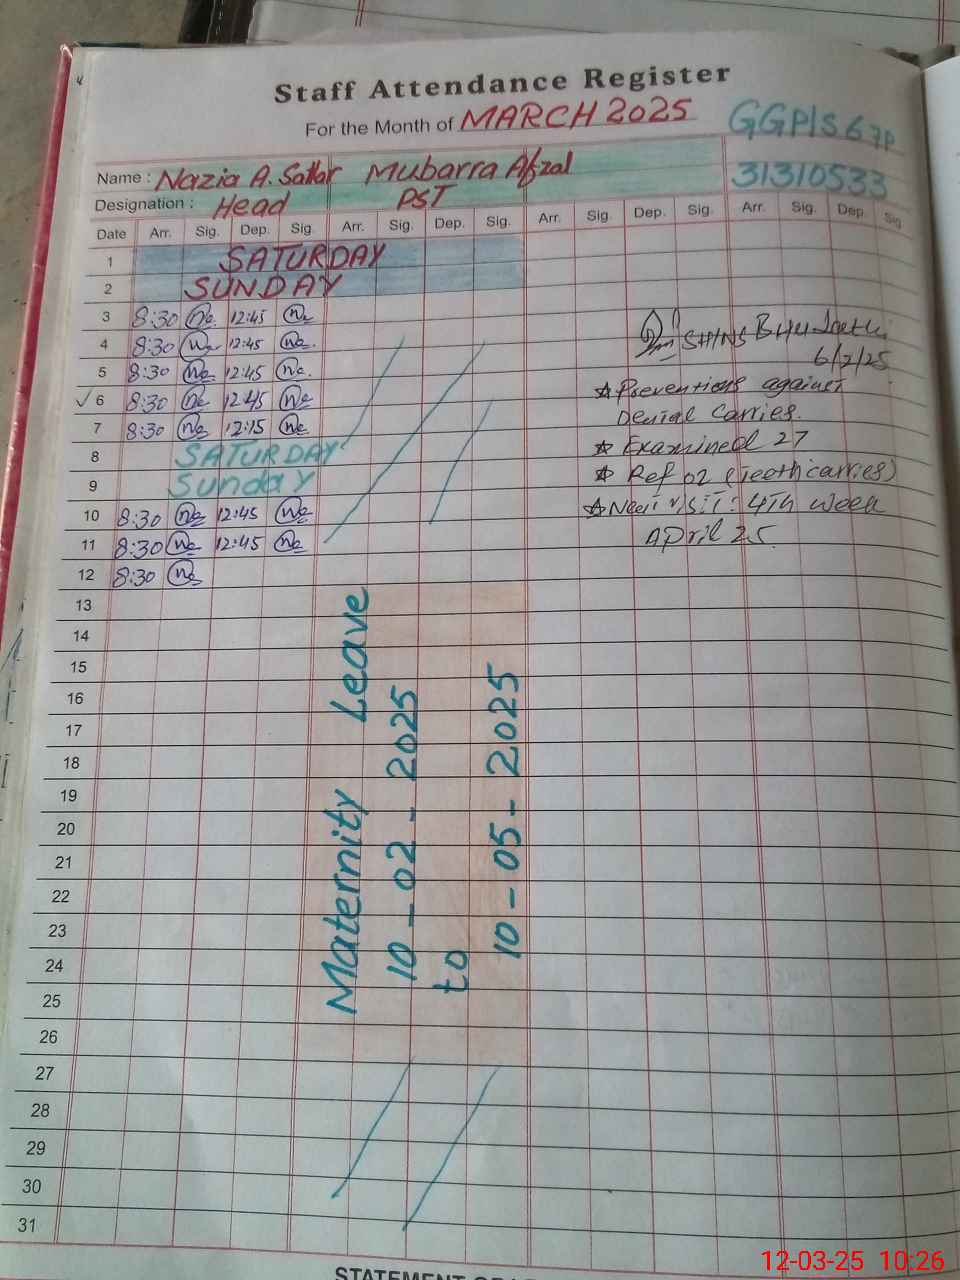 Staff Attendance Register
For the Month of MARCH 2025
GGP/S 67P
31310533
Name : Nazia A. Sattar Mubarra Afzal
Designation : Head PST
Date Arr. Sig. Dep. Sig. Arr. Sig. Dep. Sig. Arr. Sig. Dep. Sig. Arr. Sig. Dep. Sig
1 SATURDAY
2 SUNDAY
3 8:30 na 12:45 na
4 8:30 na 12:45 na
5 8:30 na 12:45 na
6 8:30 na 12:45 na
7 8:30 na 12:15 na
8 SATURDAY
9 Sunday
10 8:30 na 12:45 na
11 8:30 na 12:45 na
12 8:30 na
13
14
15
16
17
18
19
20
21
22
23
24
25
26
27
28
29
30
31
SH/NS BHU
6/2/25
Preventions against
Dental Carries.
Examined 27
Ref 02 (Teeth carries)
Next visit: 4th week
April 25.
Maternity Leave
10 - 02 - 2025
to
10 - 05 - 2025
12-03-25 10:26